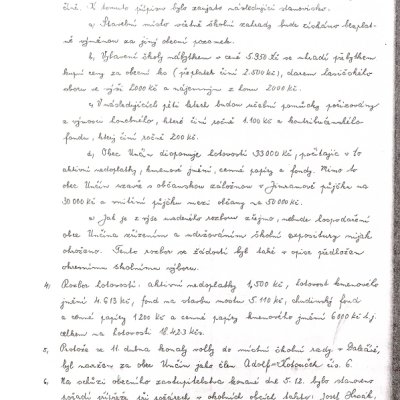 čině. K tomuto přípisu bylo zaujato následující stanovisko.
a) Stavební místo včetně školní zahrady bude získáno bezplat-
ně výměnou za jiný obecní pozemek.
b) Vybavení školy nábytkem v ceně 5.950 Kč se uhradí zbytkem
kupní ceny za obecní ho (přeplatek činí 2.500 Kč), darem
obru ve výši 2000 Kč a nájemným z bouru 2000 Kč.
c) V následujících pěti letech budou učební pomůcky pořizovány
z výnosu honebního, které činí ročně 1.100 Kč a kontribučenského
fondu, který činí ročně 200 Kč.
d) Obec Unčín disponuje hotovostí 33 000 Kč, počítajíc v to
aktivní nedoplatky, kmenové jmění, cenné papíry a fondy. Mimo to
obec Unčín uzavře s občanskou záložnou v Jimramově půjčku na
30 000 Kč a vnitřní půjčku mezi občany na 50 000 Kč.
e) Jak je z výše uvedeného rozboru zřejmo, nebude hospodaření
obce Unčína zřízením a udržováním školní expositury nijak
ohroženo. Tento rozbor se žádostí byl také v opise předložen
okresnímu školnímu výboru.
4) Rozbor hotovosti: aktivní nedoplatky 1,500 Kč, hotovost kmenového
jmění 4.613 Kč, fond na stavbu mostu 5.110 Kč, chudinský fond
a cenné papíry 1200 Kč a cenné papíry kmenového jmění 6000 Kč t.j.
celkem na hotovosti 18.423 Kčs.
5, Protože se 11 dubna konaly volby do místní školní rady v Dalečíně,
byl navržen za obec Unčín jako člen Adolf Košouček čís. 6.
6. Na schůzi obecního zastupitelstva konané dne 5.12. bylo stanoveno
pořadí přípřeže při požárech v okolních obcích takto: Josef